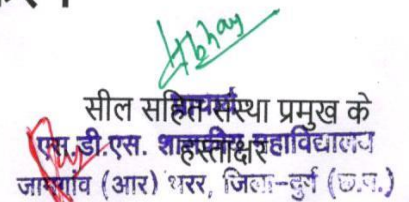 Abhay
सील सहित संस्था प्रमुख के
हस्ताक्षर
एस.डी.एस. महाविद्यालय
जामगांव (आर) जिला-दुर्ग (छ.ग.)